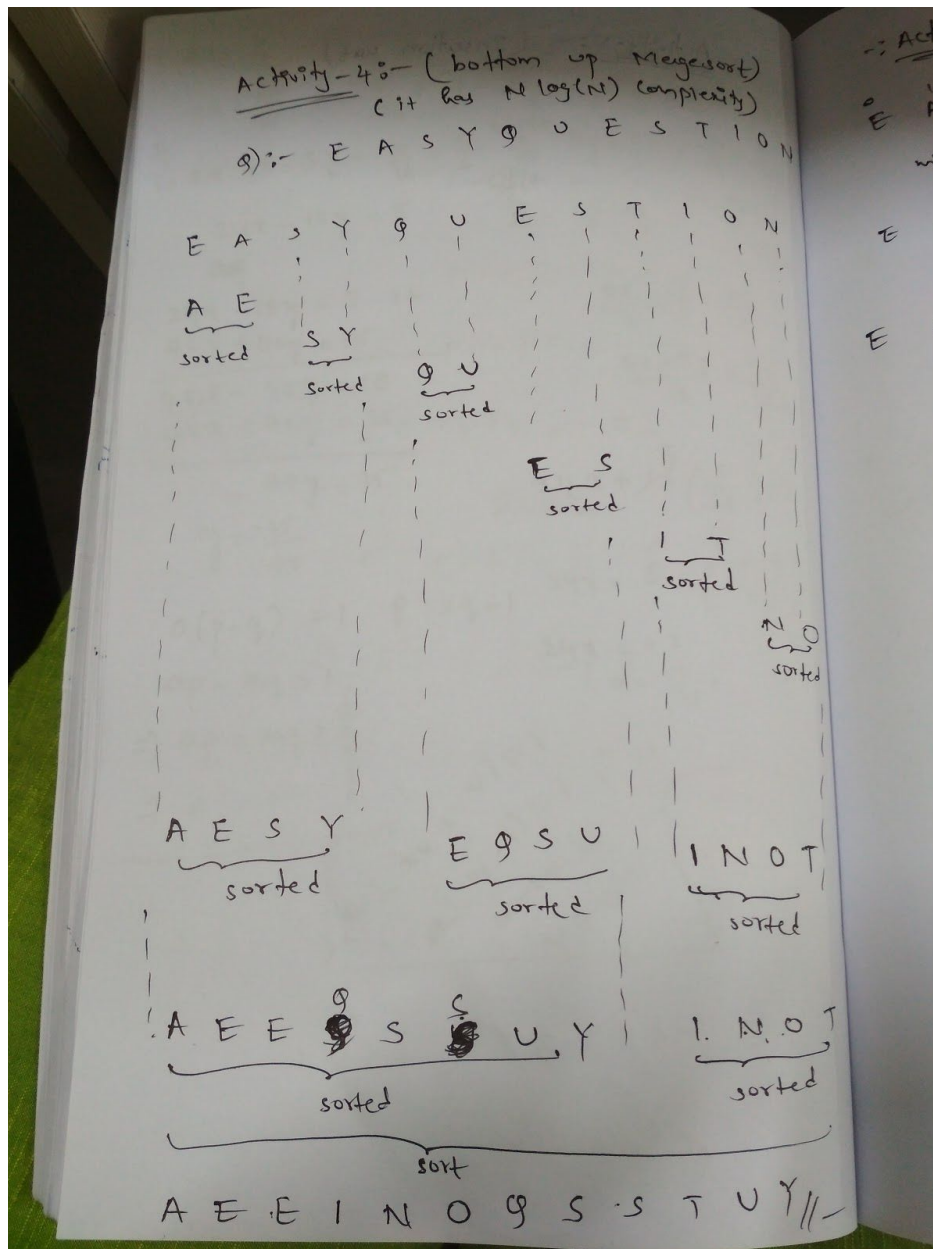 Activity-4:- (bottom up Mergesort)
( it has N log(N) Complexity)
Q):- E A S Y Q U E S T I O N
E A S Y Q U E S T I O N
A E
sorted
S Y
sorted
Q U
sorted
E S
sorted
I T
sorted
N O
sorted
A E S Y
sorted
E Q S U
sorted
I N O T
sorted
Q S
A E E S U Y I. N. O T
sorted
sorted
sort
A E E I N O Q S S T U Y //
-: Act
E
E
E